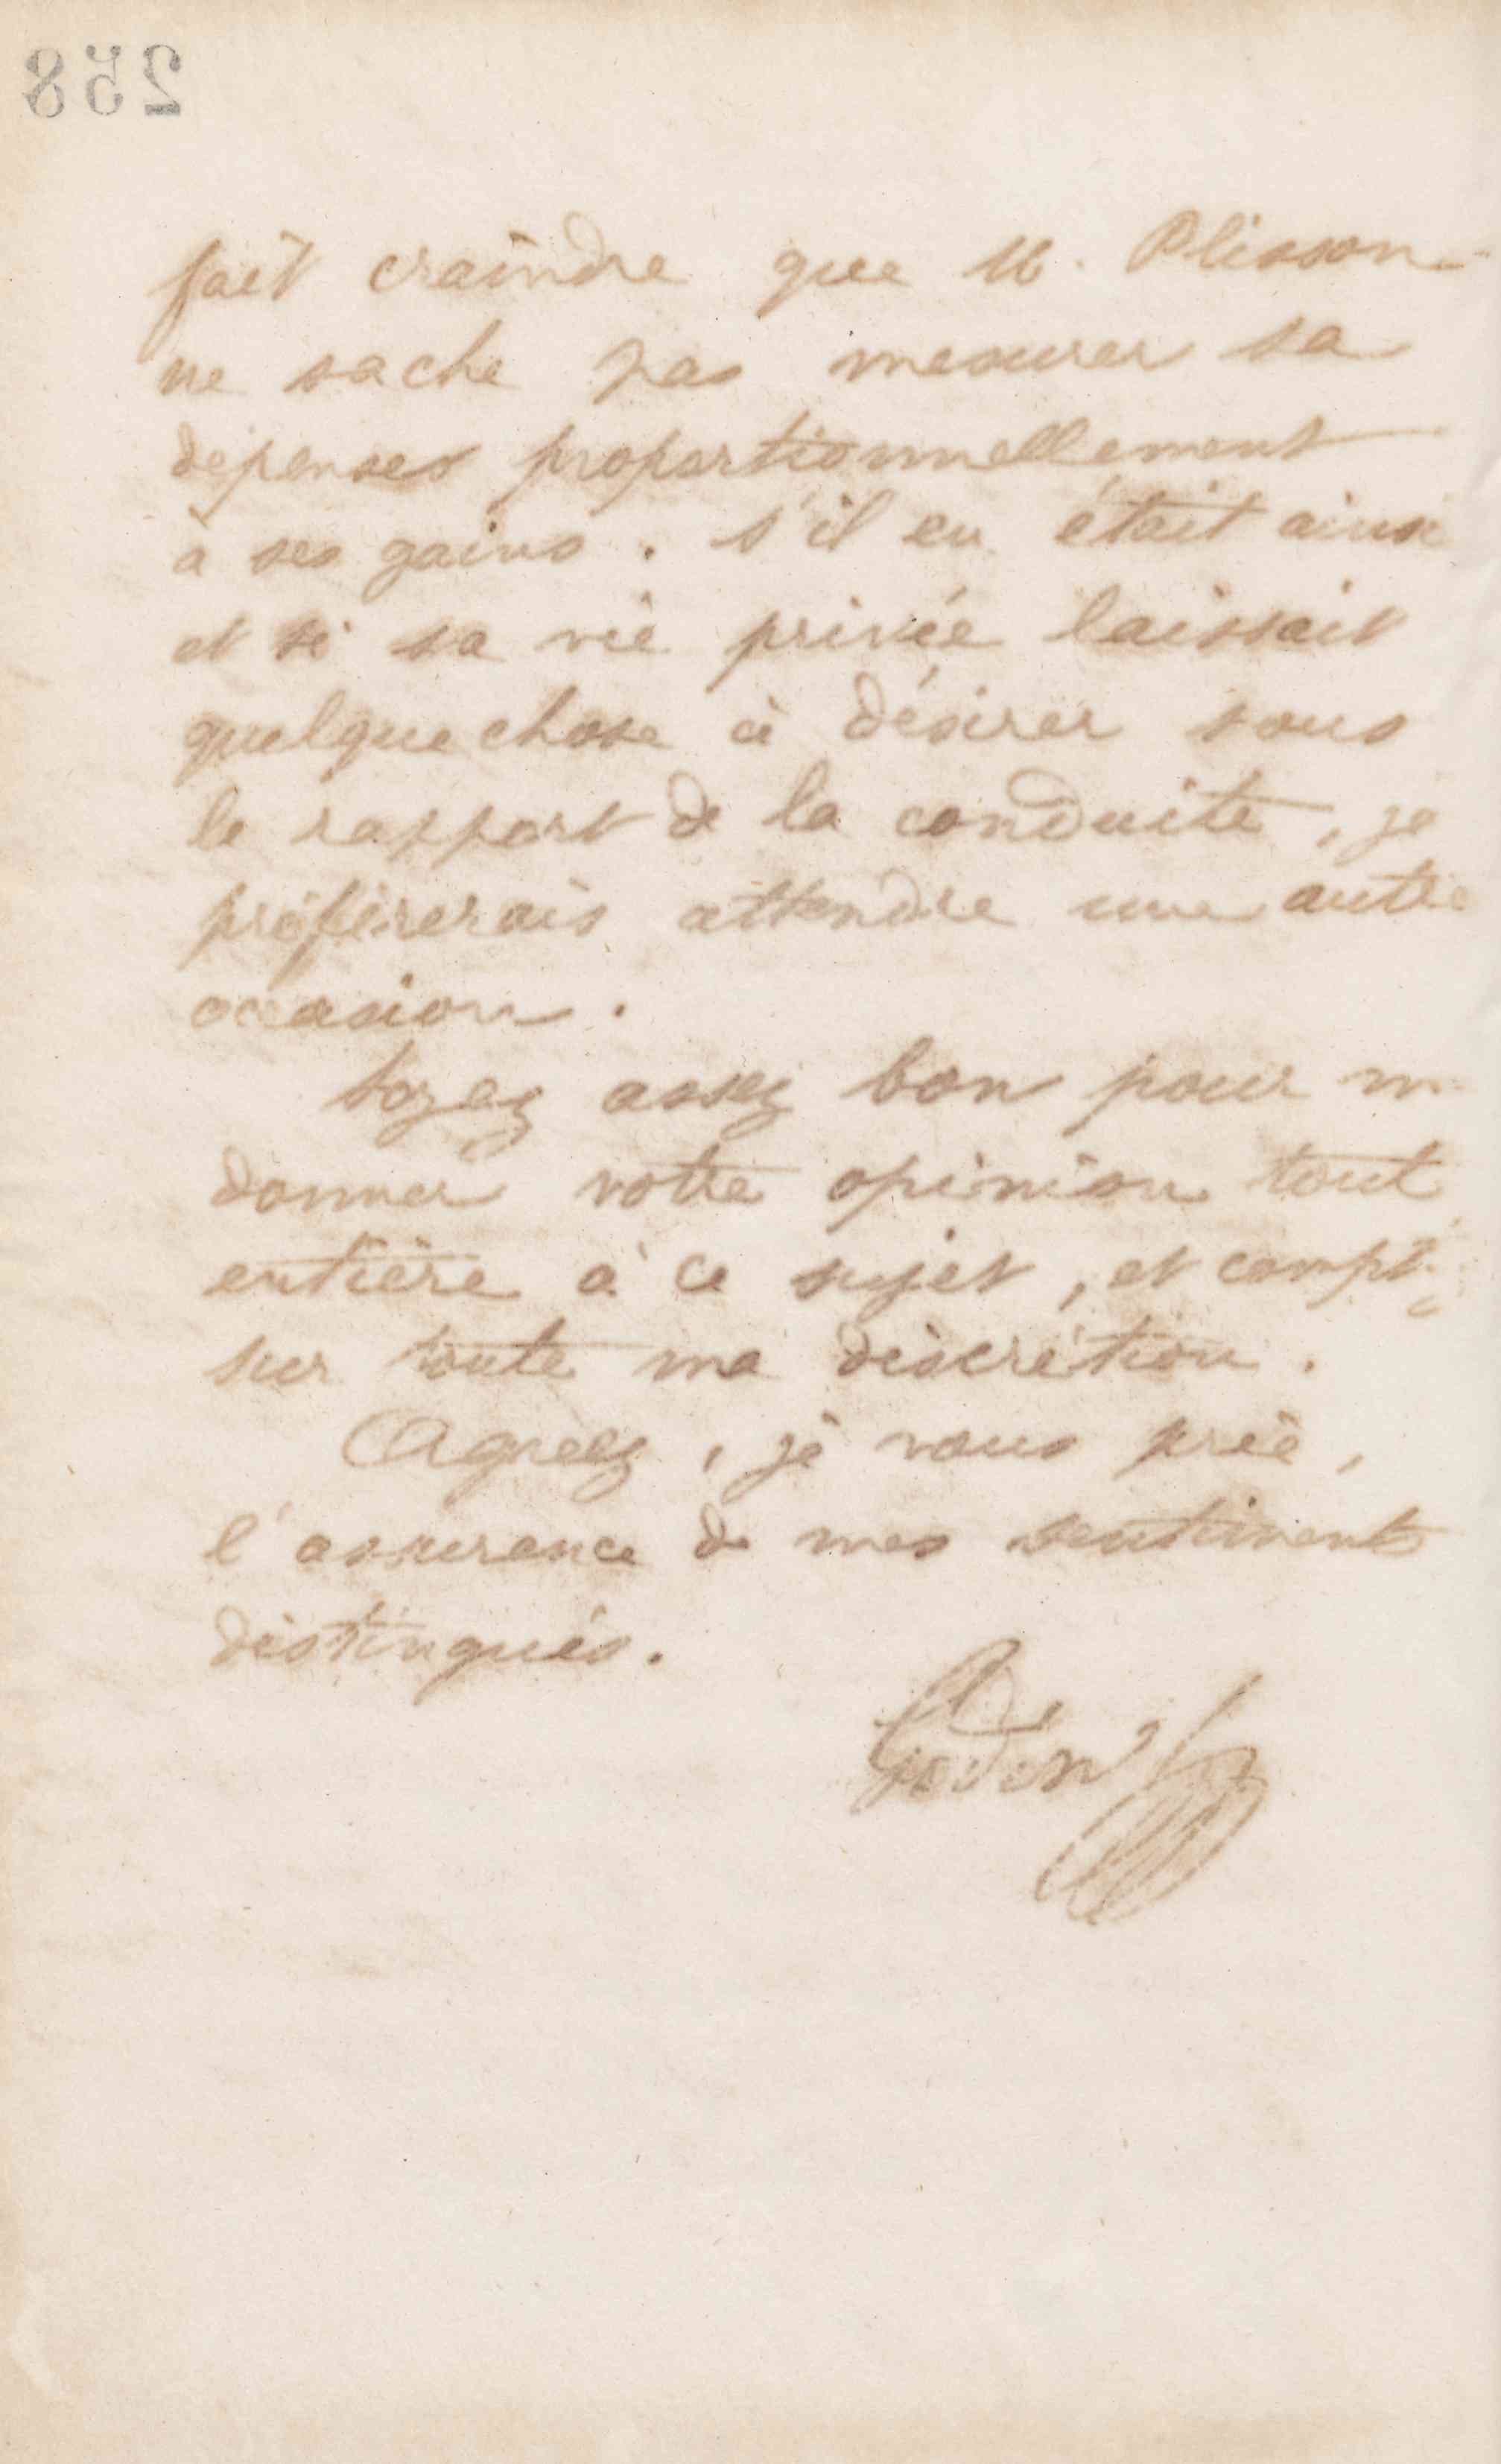 258
fait craindre que M. Plisson
ne sache pas mesurer sa
dépenses proportionnellement
à ses gains. S'il en était ainsi
et si sa vie privée laissait
quelque chose à désirer sous
le rapport de la conduite, je
préfèrerais attendre une autre
occasion.
Soyez assez bon pour m
donner votre opinion tout
entière à ce sujet, et compt
sur toute ma discrétion.
Agréez, je vous prie,
l'assurance de mes sentiments
distingués.
Godin